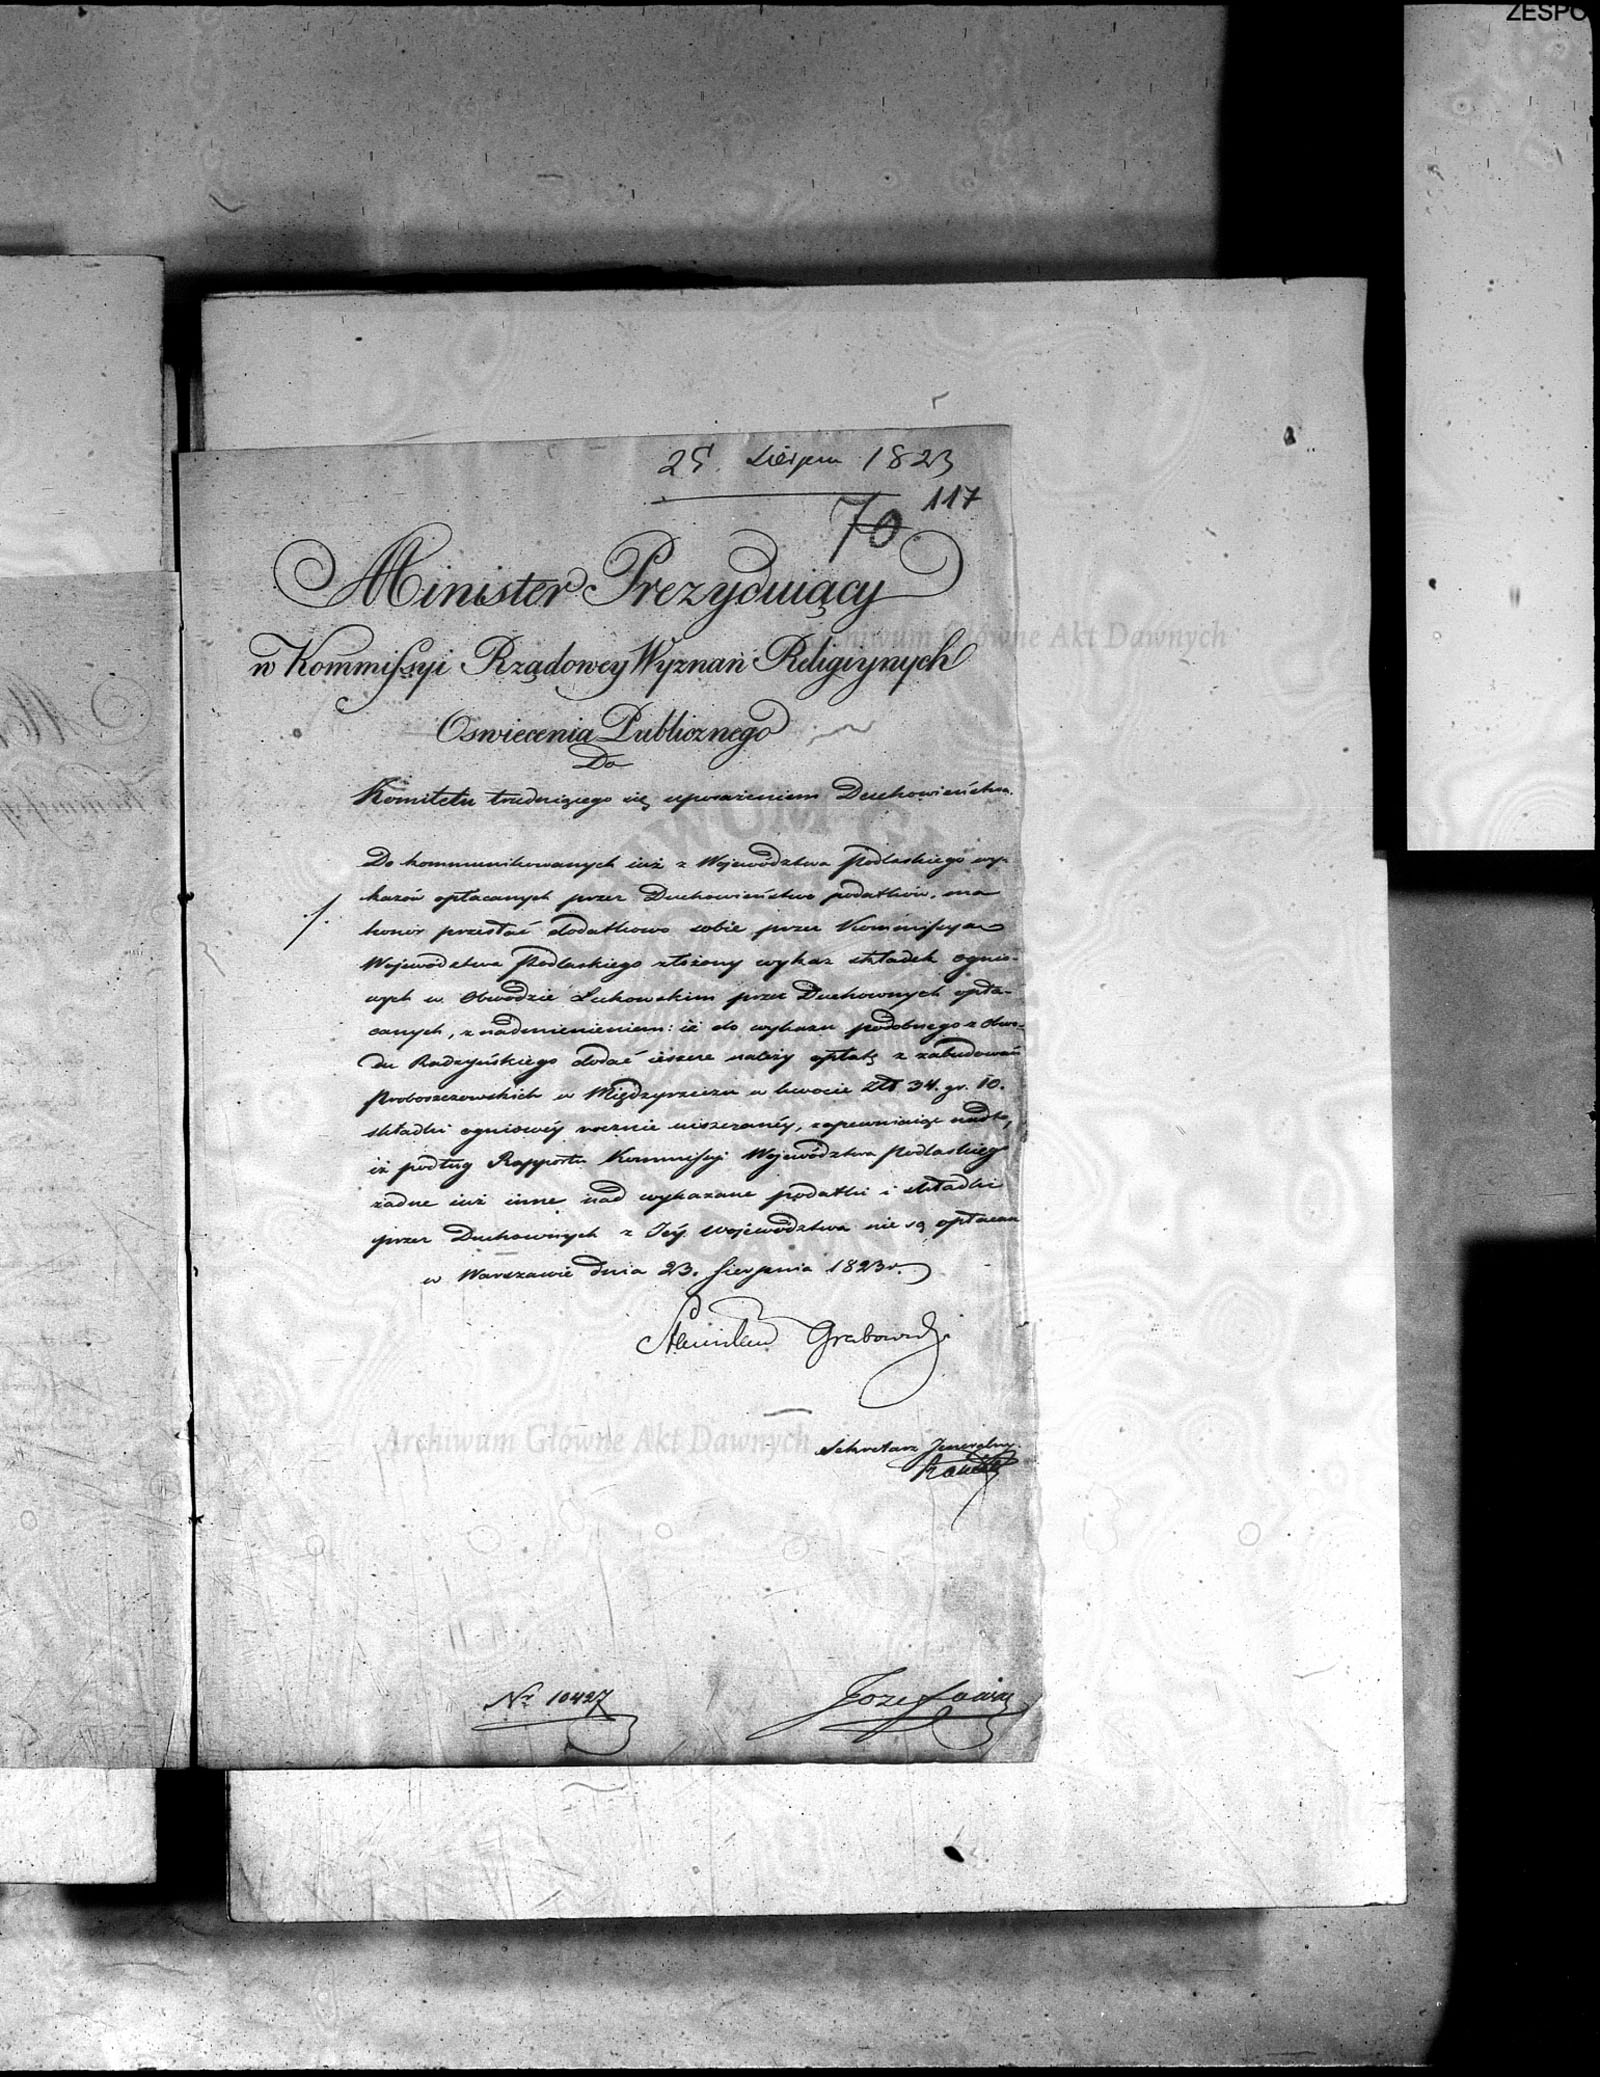 ZESPO
25. Sierpnia 1823
117
70
Minister Prezyduiący
w Kommissyi Rządowey Wyznań Religiynych
Oswiecenia Publicznego
Do
Komitetu trudniącego się uposażeniem Duchowieństwa.
Do kommunikowanych iuż z Województwa Podlaskiego wy-
kazów opłacanych przez Duchowieństwo podatków, ma
honor przesłać dodatkowo sobie przez Kommissyą
Województwa Podlaskiego złożony wykaz składek ognio-
wych w Obwodzie Łukowskim przez Duchownych opła-
canych, z nadmienieniem: iż do wykazu podobnego z Obwo-
du Radzyńskiego dodać ieszcze należy opłatę z zabudowań
Proboszczowskich w Międzyrzeczu w kwocie Złt 34. gr. 10.
składki ogniowéy rocznie uiszczanéy, zapewniaiąc nadto,
iż podług Rapportu Kommissyi Województwa Podlaskieg
żadne iuż inne nad wykazane podatki i składki
przez Duchownych z Téy Województwa nie są opłacan
w Warszawie dnia 23. Sierpnia 1823 r.
Stanisław Grabowski
Sekretarz Jeneralny.
Nr 10427
Archiwum Główne Akt Dawnych
Archiwum Główne Akt Dawnych